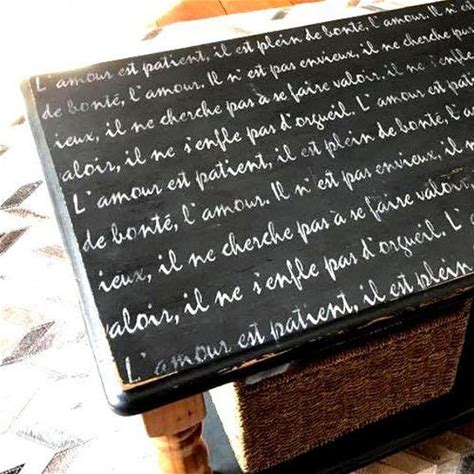 L'amour est patient, il est plein de bonté, l'amour. Il n'est
de bonté, l'amour. Il n'est pas envieux, il ne cherche pas
ieux, il ne cherche pas à se faire valoir, il ne s'enfle
aloir, il ne s'enfle pas d'orgueil. L'amour est patient
L'amour est patient, il est plein de bonté, l'amour
de bonté, l'amour. Il n'est pas envieux, il ne
ieux, il ne cherche pas à se faire valoir
aloir, il ne s'enfle pas d'orgueil. L'
L'amour est patient, il est plein